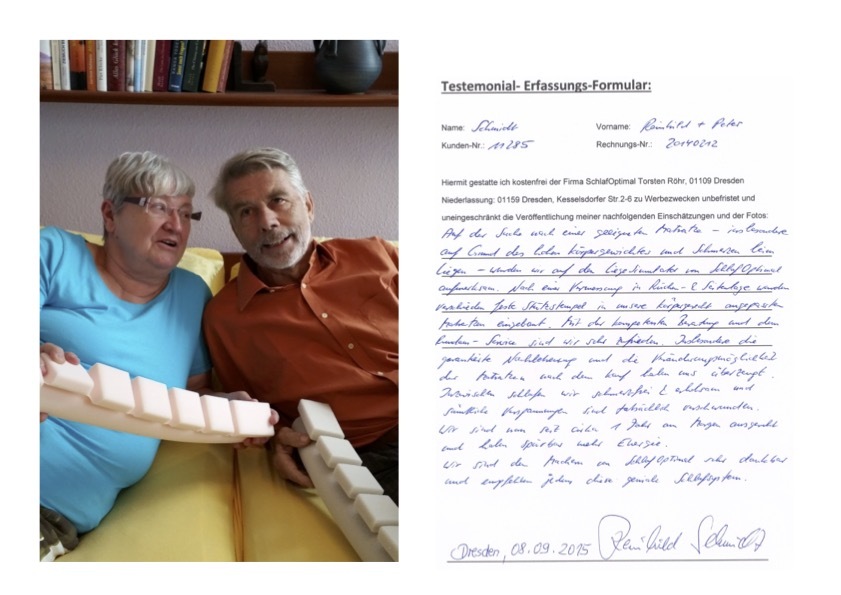 Testemonial- Erfassungs-Formular:
Name: Schmidt Vorname: Reinhild + Peter
Kunden-Nr.: 11285 Rechnungs-Nr.: 20140212
Hiermit gestatte ich kostenfrei der Firma SchlafOptimal Torsten Röhr, 01109 Dresden
Niederlassung: 01159 Dresden, Kesselsdorfer Str.2-6 zu Werbezwecken unbefristet und
uneingeschränkt die Veröffentlichung meiner nachfolgenden Einschätzungen und der Fotos:
Auf der Suche nach einer geeigneten Matratze - insbesondere
auf Grund des hohen Körpergewichtes und Schmerzen beim
Liegen - wurden wir auf den Liegesimulator von SchlafOptimal
aufmerksam. Nach einer Vermessung in Rücken- & Seitenlage wurden
verschieden feste Stützstempel in unsere körpergerecht angepassten
Matratzen eingebaut. Mit der kompetenten Beratung und dem
Rundum-Service sind wir sehr zufrieden. Insbesondere die
garantierte Nachlieferung und die Veränderungsmöglichkeit
der Matratzen nach dem Kauf haben uns überzeugt.
Inzwischen schlafen wir schmerzfrei & erholsam und
sämtliche Verspannungen sind tatsächlich verschwunden.
Wir sind nun seit circa 1 Jahr am Morgen ausgeruht
und haben spürbar mehr Energie.
Wir sind den Machern von SchlafOptimal sehr dankbar
und empfehlen jedem diese geniale Schlafsystem.
Dresden, 08.09.2015 Reinhild Schmidt